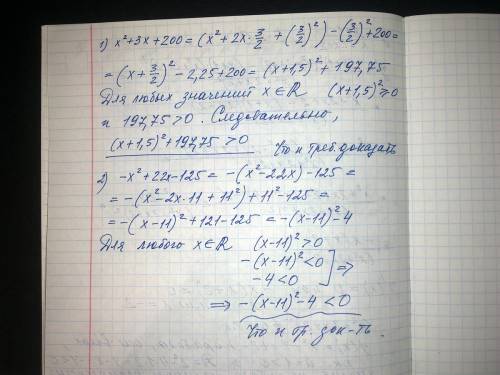 1) x²+3x+200=(x²+2x·3/2+(3/2)²)-(3/2)²+200=
=(x+3/2)²-2,25+200=(x+1,5)²+197,75
Для любых значений x∈ℝ (x+1,5)²≥0
и 197,75>0. Следовательно,
(x+1,5)²+197,75>0
Что и треб. доказать
2) -x²+22x-125=-(x²-22x)-125=
=-(x²-2x·11+11²)+11²-125=
=-(x-11)²+121-125=-(x-11)²-4
Для любого x∈ℝ (x-11)²>0
-(x-11)²<0
-4<0 ] ⇒
⇒ -(x-11)²-4<0
Что и тр. док-ть.